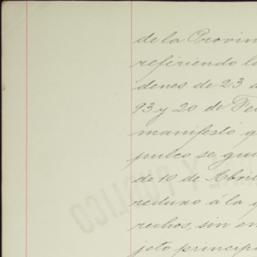 de la Provin
refiriendo la
denes de 23 d
93 y 20 de Fe
manifesto q
pulco se, gui
de 10 de Abri
reduxo á la q
rechos, sin em
jeto princip